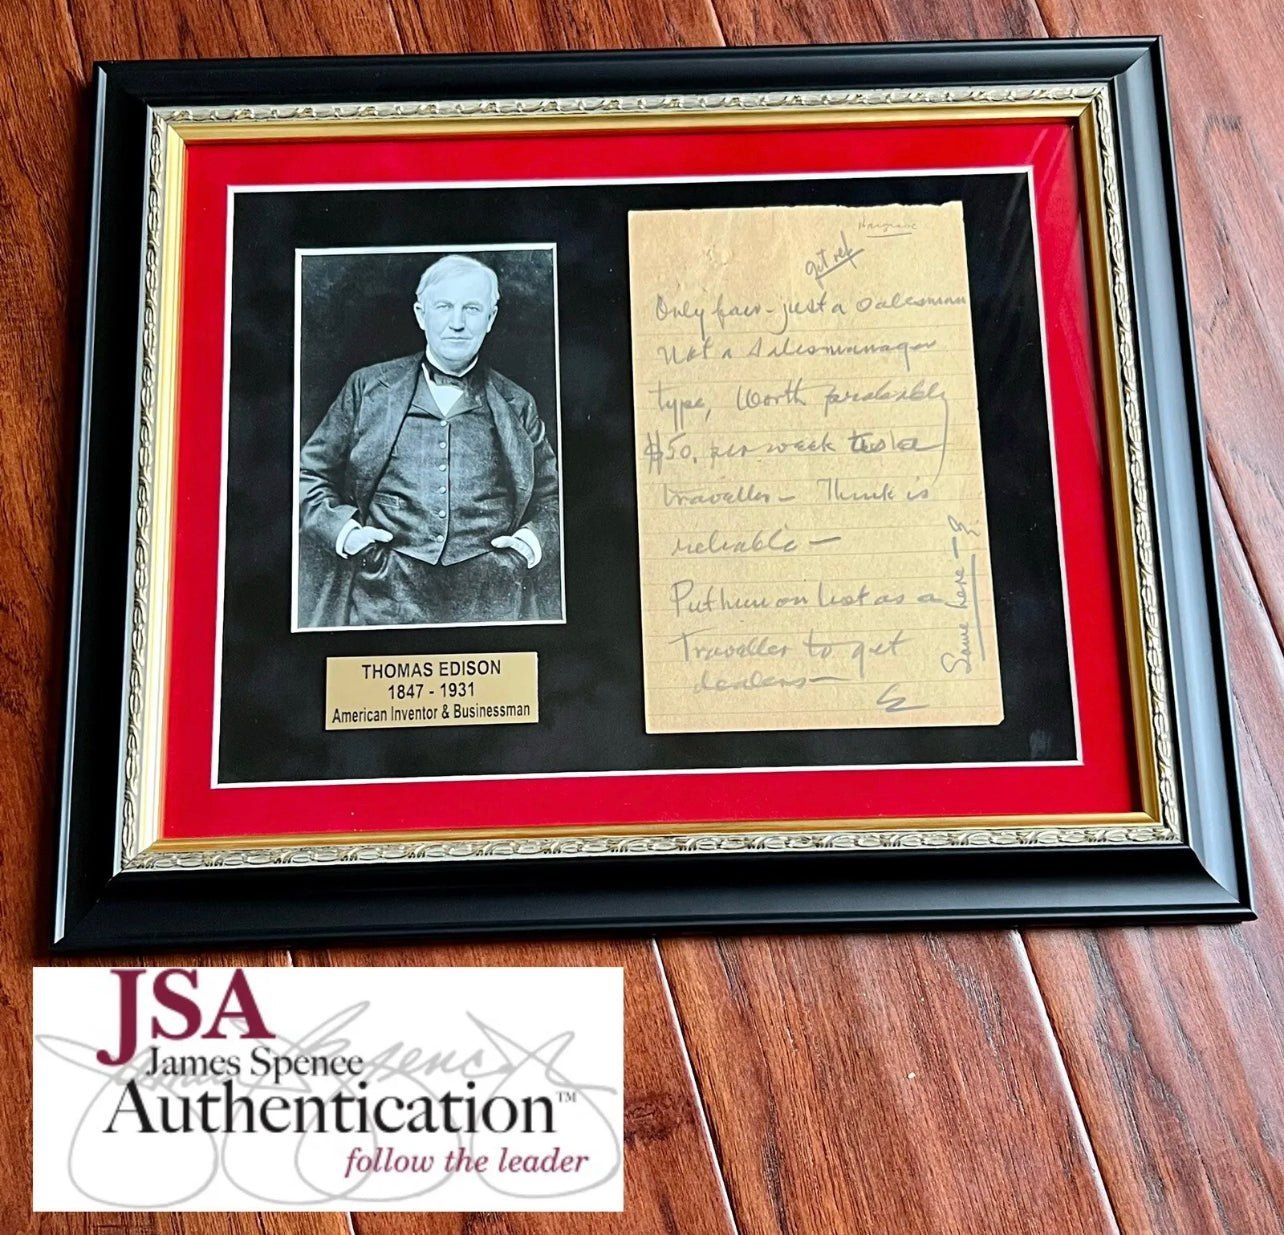 THOMAS EDISON
1847 - 1931
American Inventor & Businessman
Hargrave
got ref
Only fair - just a salesman
not a salesmanager
type, Worth probably
$50. per week as a
traveller - Think is
reliable -
Put him on list as a
Traveller to get
dealers -
E
Same here - E
JSA
James Spence
Authentication™
follow the leader